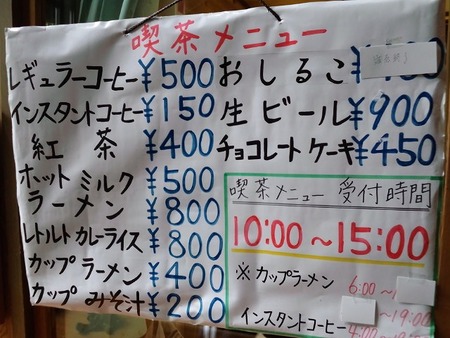 喫茶メニュー
レギュラーコーヒー ¥500
インスタントコーヒー ¥150
紅茶 ¥400
ホットミルク ¥500
ラーメン ¥800
レトルトカレーライス ¥800
カップラーメン ¥400
カップみそ汁 ¥200
おしるこ
生ビール ¥900
チョコレートケーキ ¥450
喫茶メニュー 受付時間
10:00~15:00
※カップラーメン
6:00~
インスタントコーヒー
19:00